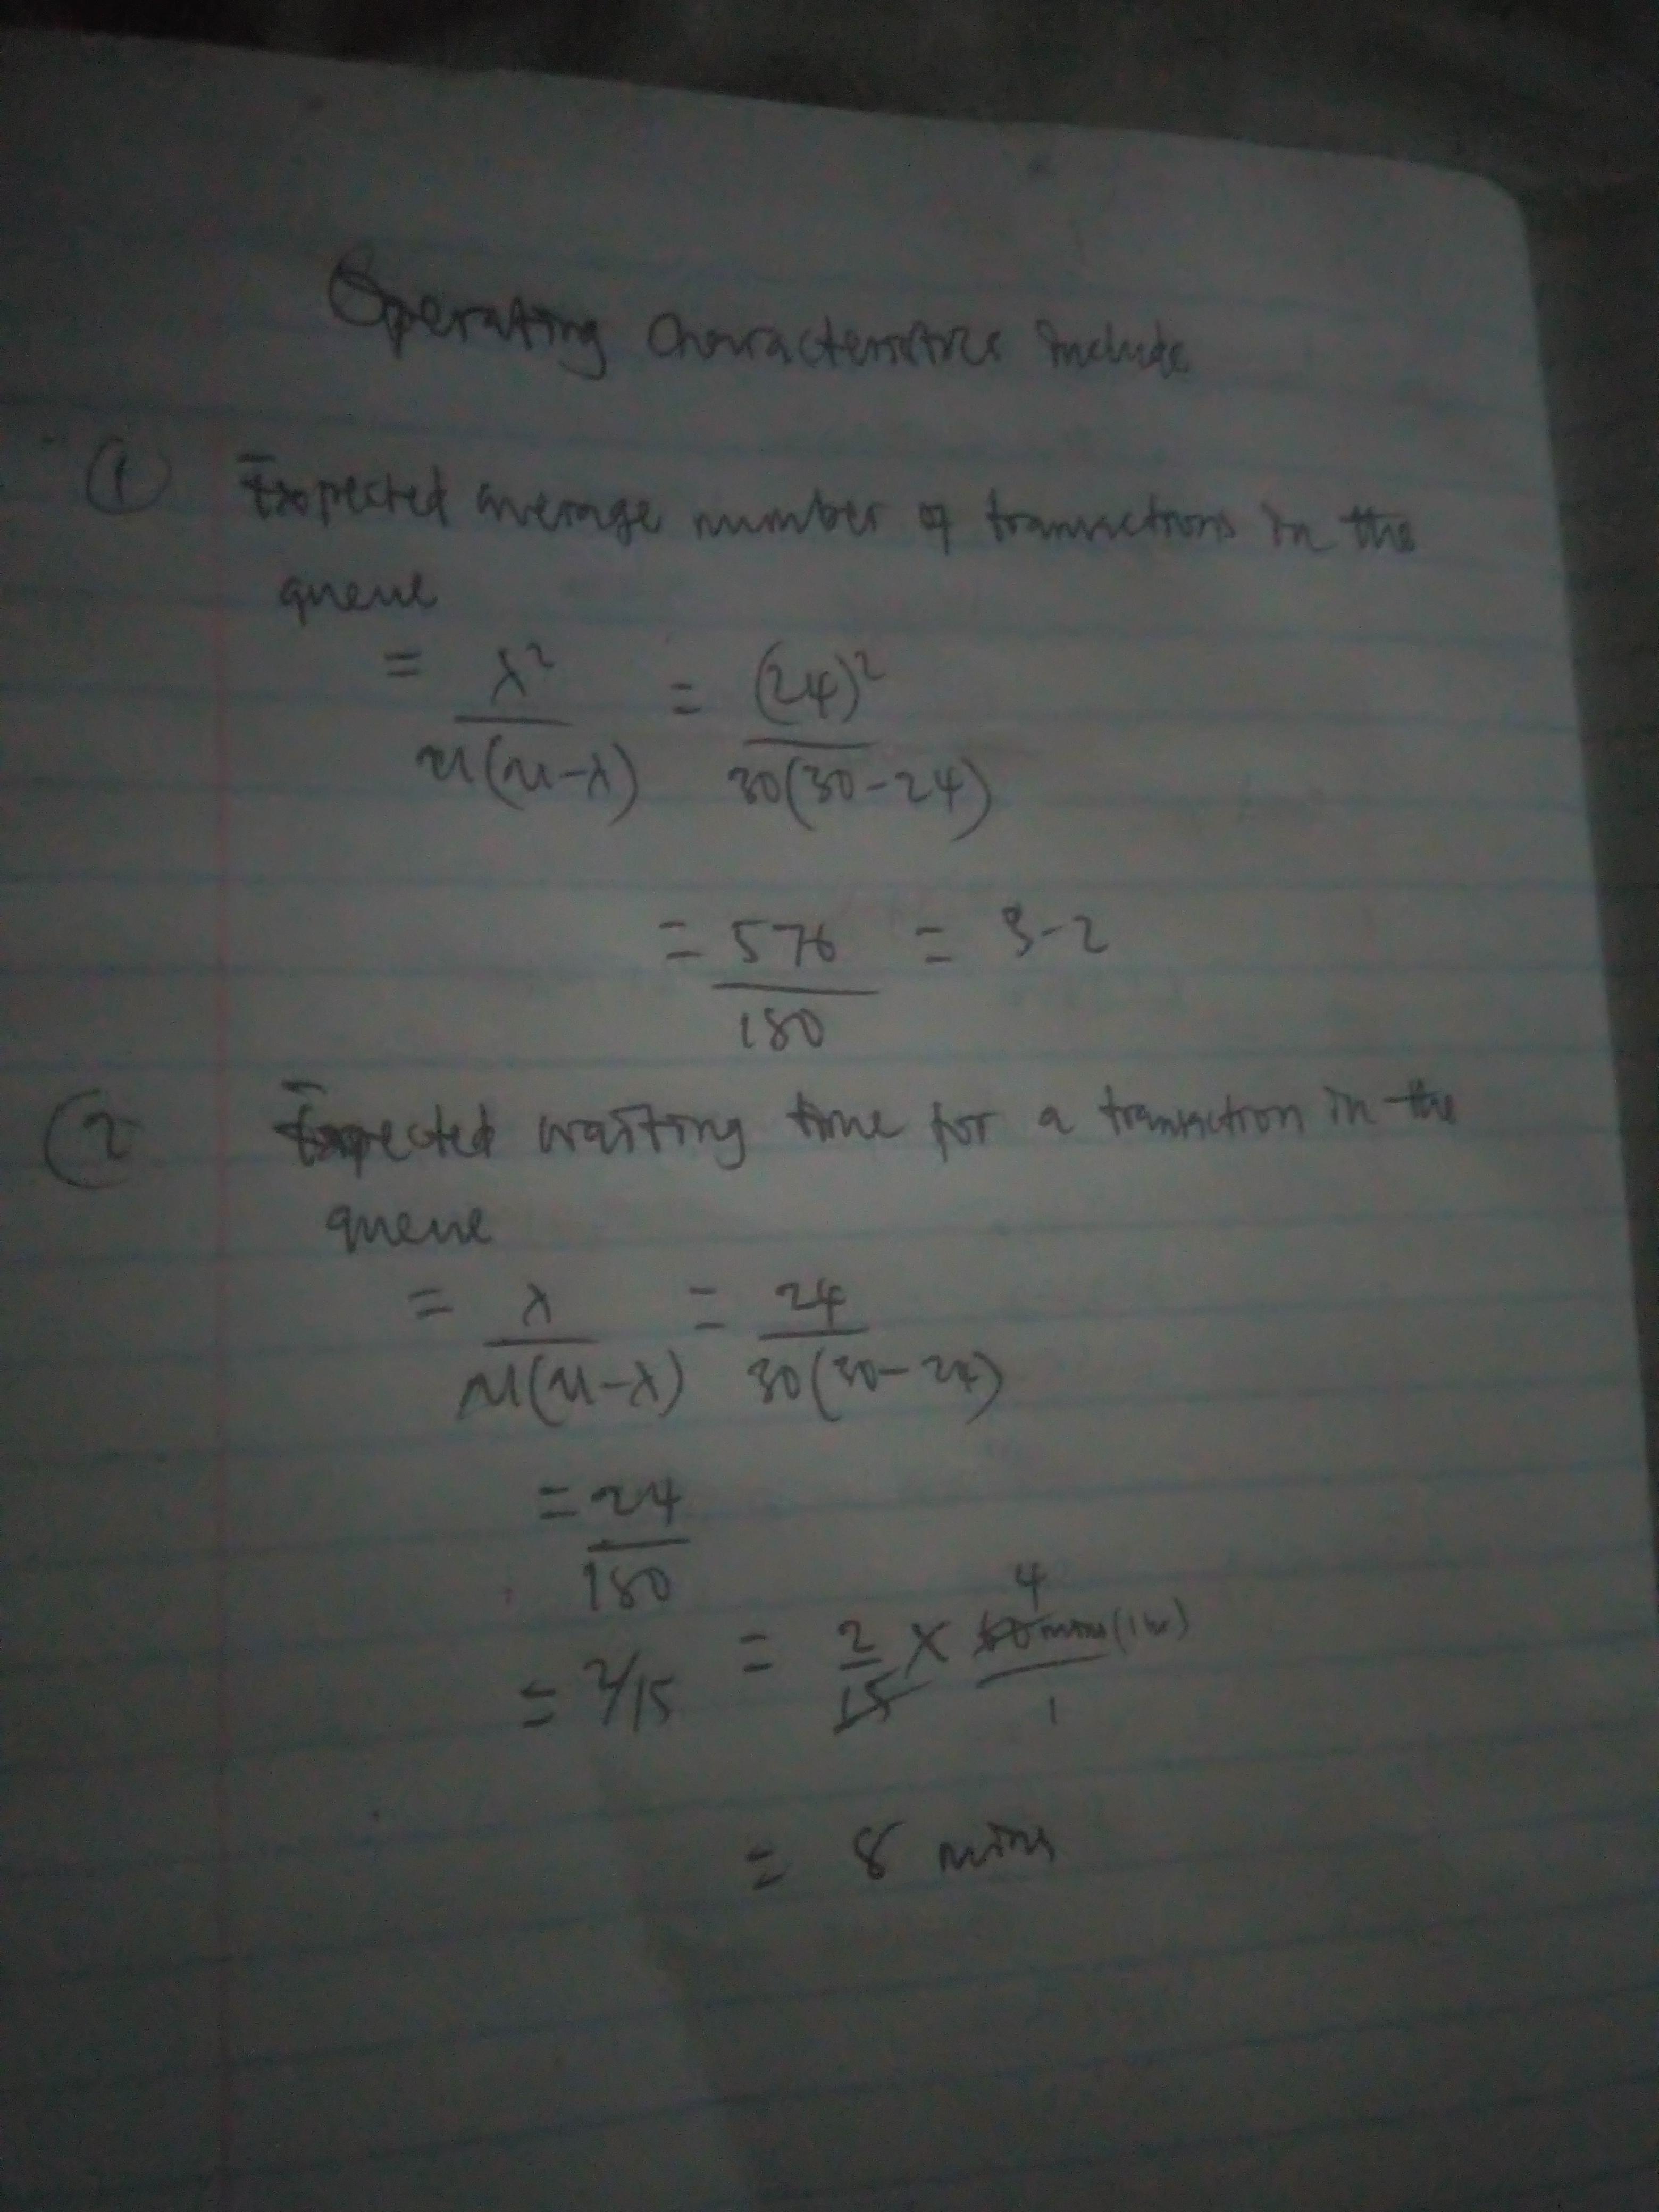 Operating Characteristics include
① Expected average number of transactions in the
queue
= λ² / μ(μ-λ) = (24)² / 30(30-24)
= 576 / 180 = 3.2
(2 Expected waiting time for a transaction in the
queue
= λ / μ(μ-λ) = 24 / 30(30-24)
= 24 / 180
= 2/15 = 2/15 × 4 60mins(1hr) / 1
= 8 mins